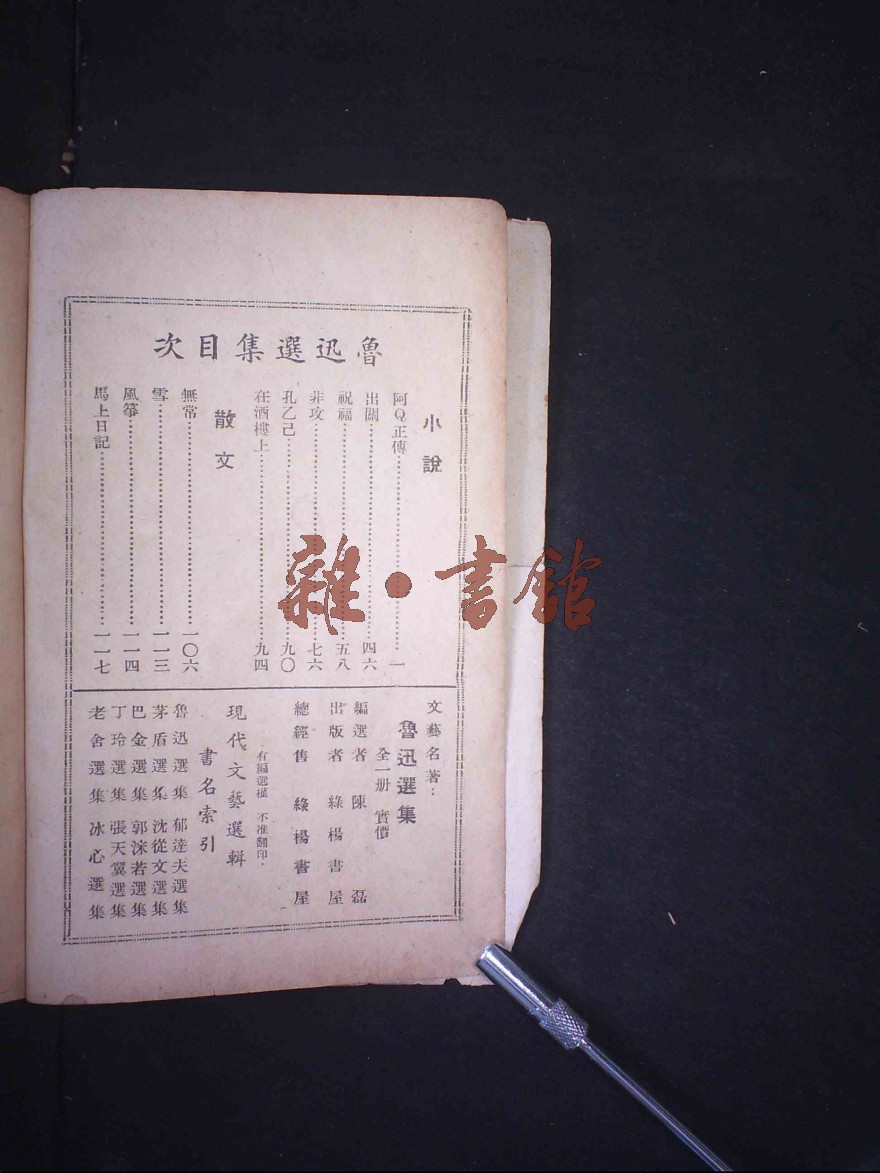 魯迅選集目次
小說
阿Q正傳…………一
出關…………四六
祝福…………五八
非攻…………七六
孔乙己…………九〇
在酒樓上…………九四
散文
無常…………一〇六
雪…………一一三
風箏…………一一四
馬上日記…………一一七
文藝名著：
魯迅選集
全一册 實價
編選者 陳磊
出版者 綠楊書屋
總經售 綠楊書屋
有編選權 不准翻印．
現代文藝選輯
書名索引
魯迅選集 郁達夫選集
茅盾選集 沈從文選集
巴金選集 郭沫若選集
丁玲選集 張天翼選集
老舍選集 冰心選集
雜·書館